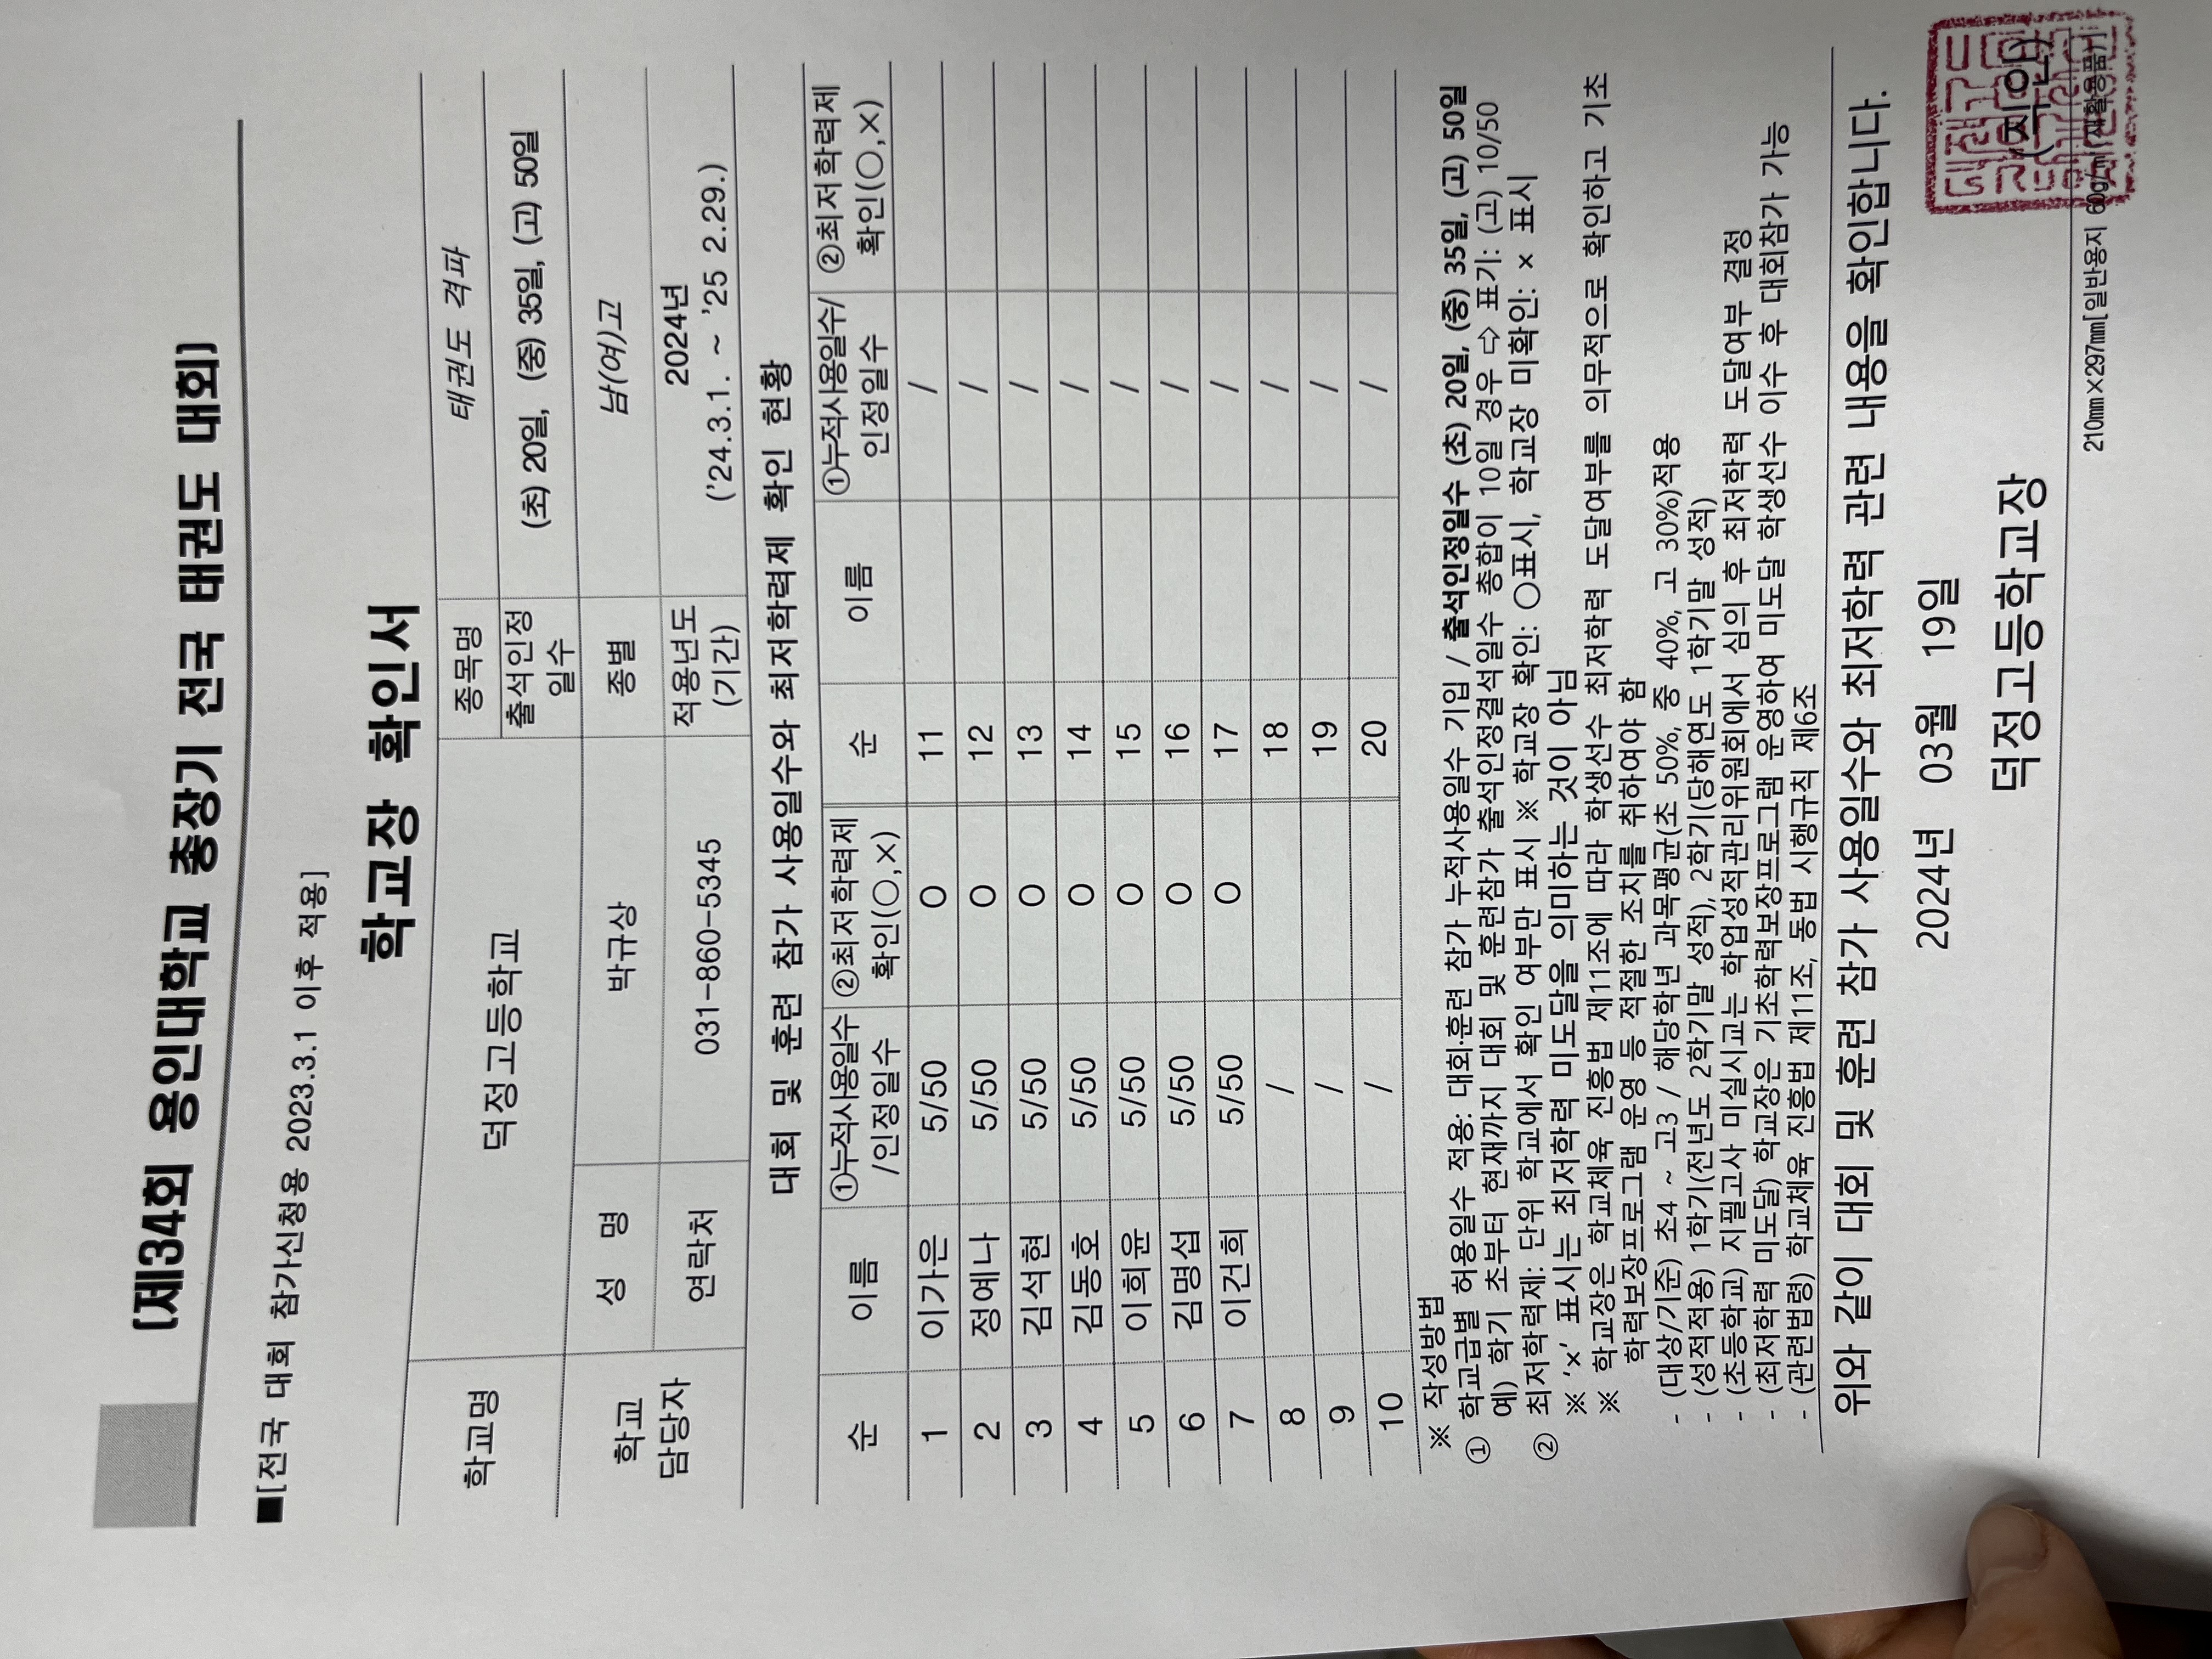 [제34회 용인대학교 총장기 전국 태권도 대회]
■[전국 대회 참가신청용 2023.3.1 이후 적용]
학교장 확인서
학교명 덕정고등학교 종목명 태권도 격파
출석인정일수 (초) 20일, (중) 35일, (고) 50일
학교 담당자 성 명 박규상 종별 남(여)고
연락처 031-860-5345 적용년도 (기간) 2024년 ('24.3.1. ~ '25 2.29.)
대회 및 훈련 참가 사용일수와 최저학력제 확인 현황
순 이름 ①누적사용일수/인정일수 ②최저학력제 확인(○,×) 순 이름 ①누적사용일수/인정일수 ②최저학력제 확인(○,×)
1 이가은 5/50 O 11 /
2 정예나 5/50 O 12 /
3 김석현 5/50 O 13 /
4 김동호 5/50 O 14 /
5 이희윤 5/50 O 15 /
6 김명섭 5/50 O 16 /
7 이건희 5/50 O 17 /
8 / 18 /
9 / 19 /
10 / 20 /
※ 작성방법
① 학교급별 허용일수 적용: 대회·훈련 참가 누적사용일수 기입 / 출석인정일수 (초) 20일, (중) 35일, (고) 50일
예) 학기 초부터 현재까지 대회 및 훈련참가 출석인정결석일수 총합이 10일 경우 ⇨ 표기: (고) 10/50
② 최저학력제: 단위 학교에서 확인 여부만 표시 ※ 학교장 확인: ○표시, 학교장 미확인: × 표시
※ '×' 표시는 최저학력 미도달을 의미하는 것이 아님
※ 학교장은 학교체육 진흥법 제11조에 따라 학생선수 최저학력 도달여부를 의무적으로 확인하고 기초
학력보장프로그램 운영 등 적절한 조치를 취하여야 함
- (대상/기준) 초4 ~ 고3 / 해당학년 과목평균(초 50%, 중 40%, 고 30%)적용
- (성적적용) 1학기(전년도 2학기말 성적), 2학기(당해연도 1학기말 성적)
- (초등학교) 지필고사 미실시교는 학업성적관리위원회에서 심의 후 최저학력 도달여부 결정
- (최저학력 미도달) 학교장은 기초학력보장프로그램 운영하여 미도달 학생선수 이수 후 대회참가 가능
- (관련법령) 학교체육 진흥법 제11조, 동법 시행규칙 제6조
위와 같이 대회 및 훈련 참가 사용일수와 최저학력 관련 내용을 확인합니다.
2024년 03월 19일
덕정고등학교장 (직인)
210㎜×297㎜[일반용지 60g/㎡(재활용품)]